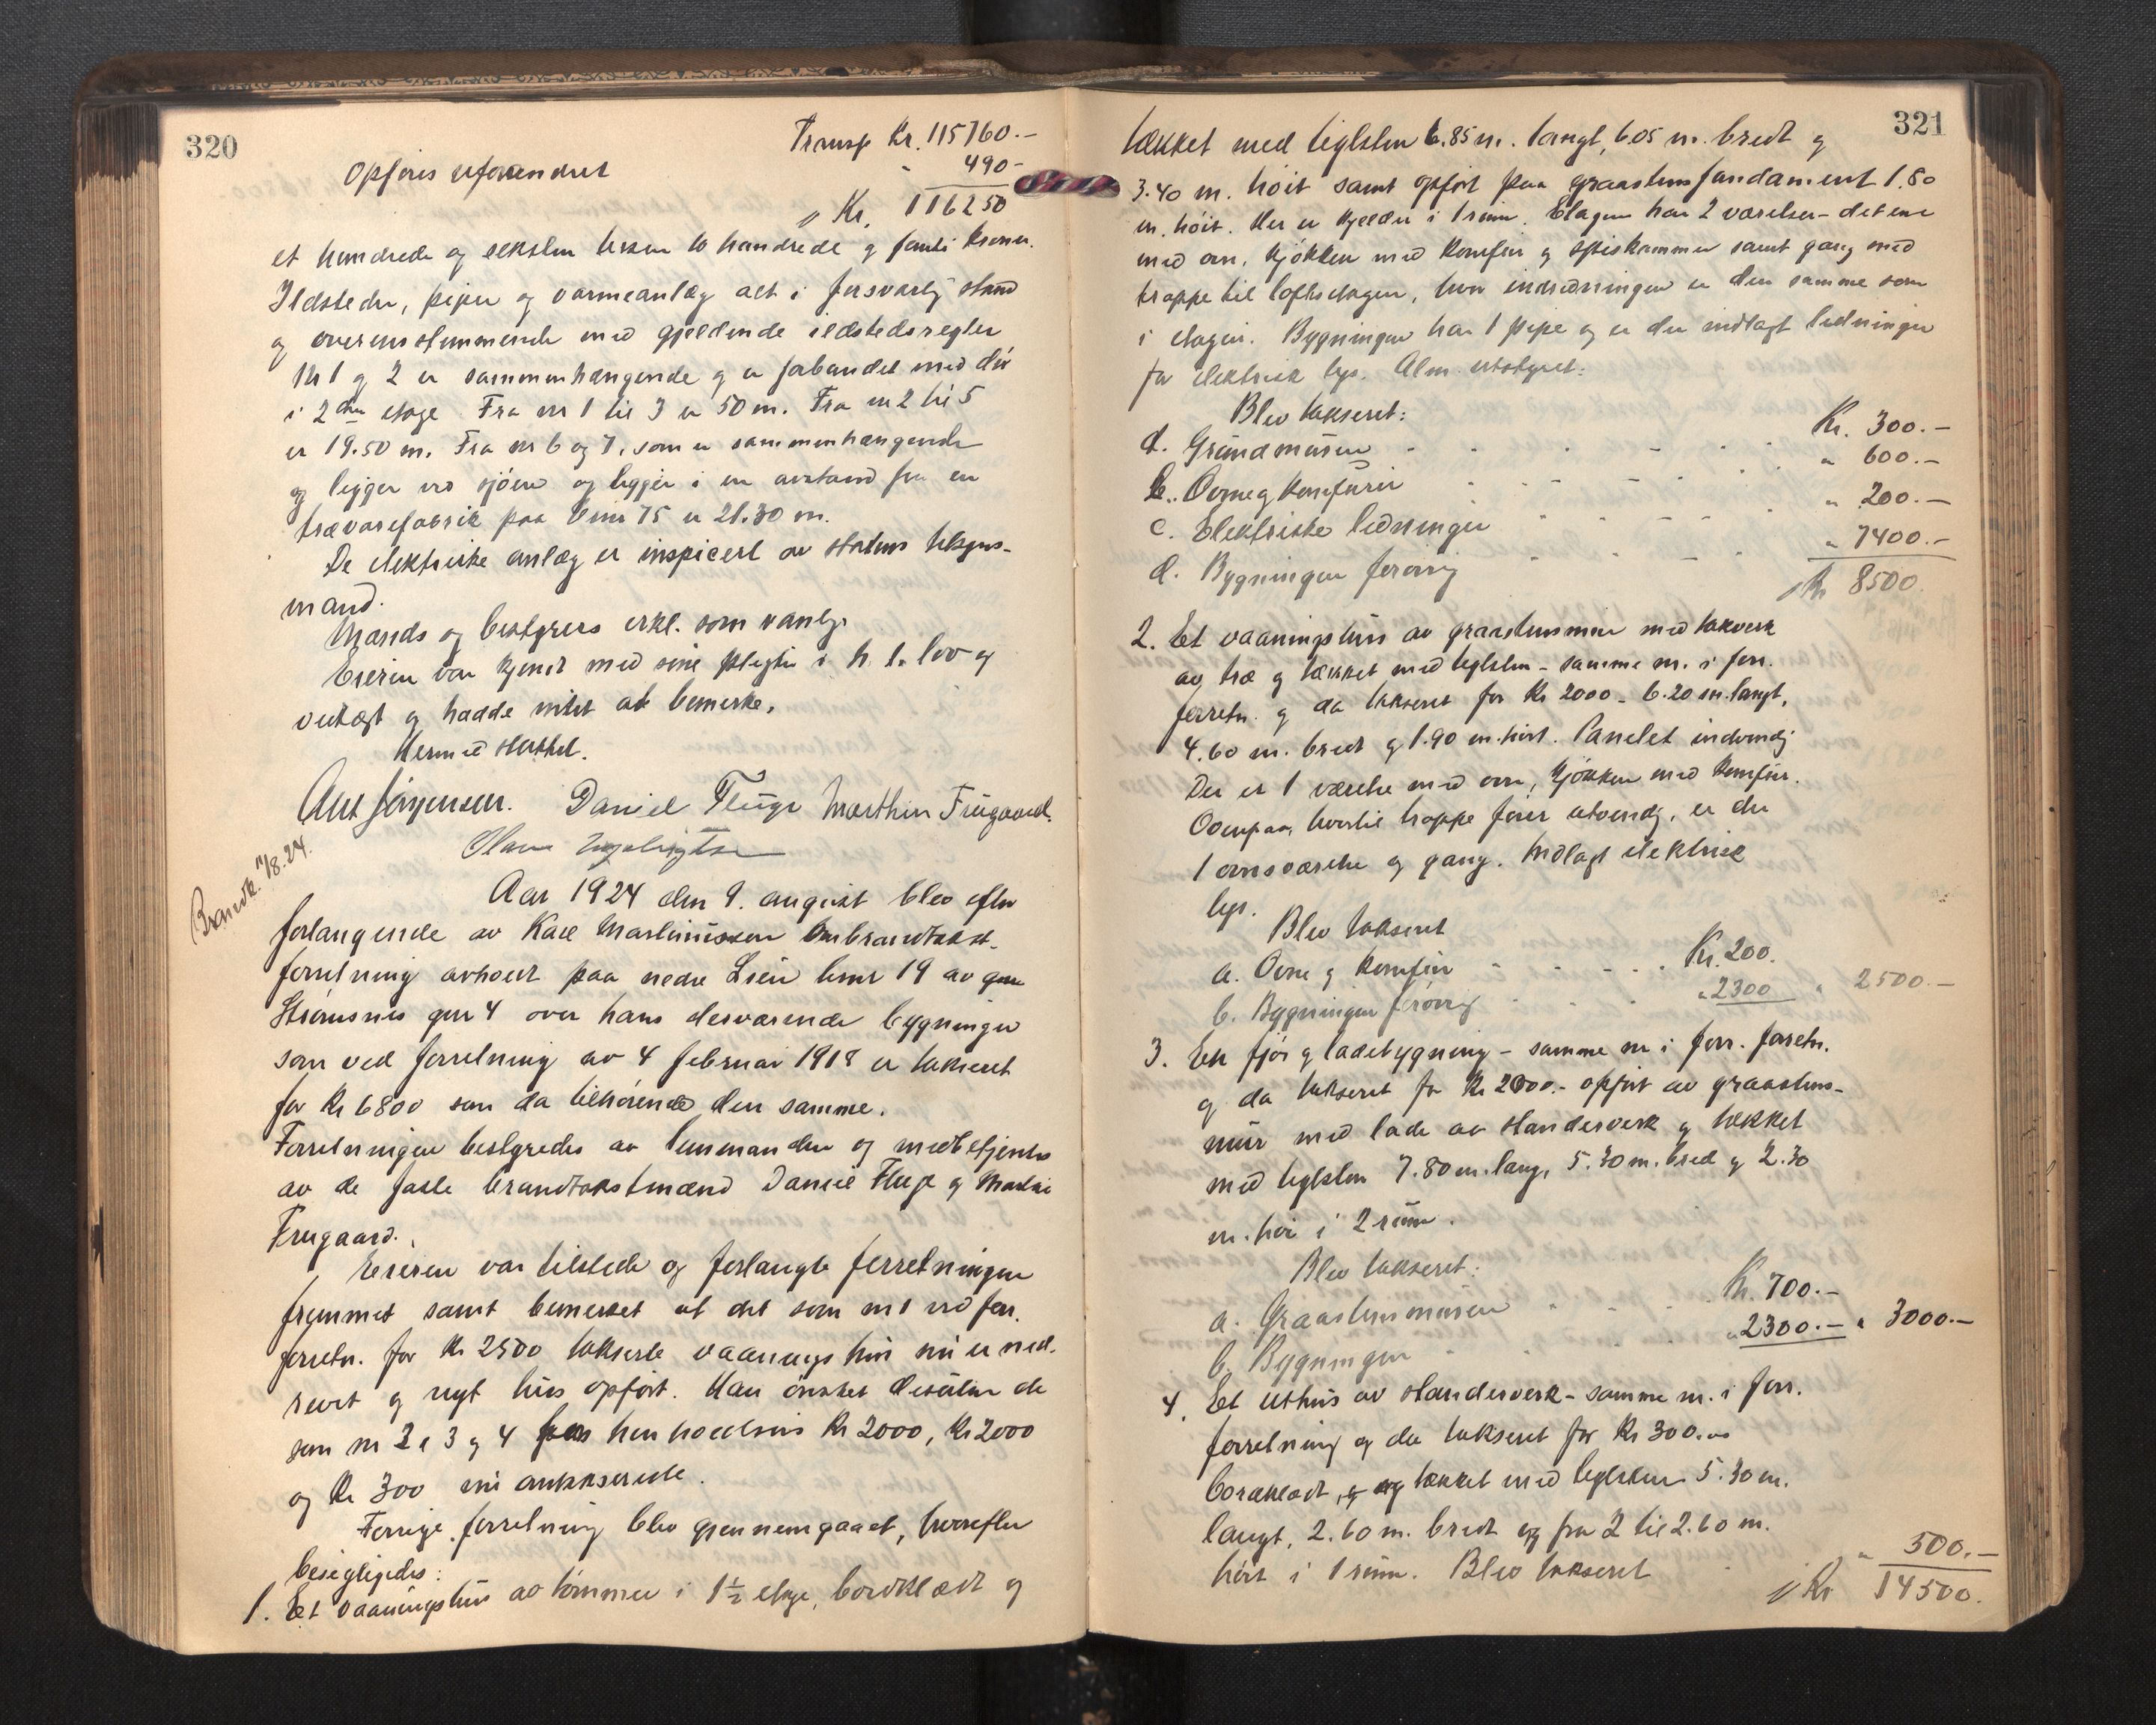 320
Transp Kr. 115760.-
Opføres uforandret " 490-
Kr. 116250
et hundrede og seksten tusen to hundrede og femti kroner.
Ildsteder, piper og varmeanlæg alt i forsvarlig stand
og overensstemmende med gjeldende ildstedsregler
Nr 1 og 2 er sammenhængende og er forbundet med dør
i 2den etage. Fra nr 1 til 3 er 50 m. Fra nr 2 til 5
er 19.50 m. Fra nr 6 og 7, som er sammenhængende
og ligger ved sjøen og ligger i en avstand fra en
trævarefabrik paa bnr 75 er 21.30 m.
De elektriske anlæg er inspicert av statens tilsyns-
mand.
Mænds og bestyrers erkl. som vanlig.
Eieren var kjendt med sine pligter i h. t. lov og
vedtægt og hadde intet at bemerke.
Dermed sluttet.
Ant Jørgensen. Daniel Fluge Marthin Frugaard.
Brandk. 11/8.24.
Aar 1924 den 9. august blev efter
forlangende av Karl Martinussen ombrandtakst-
forretning avholdt paa nedre Lien bnr 19 av gnr
Strømsnes gnr 4 over hans desværende bygninger
som ved forretning av 4 februar 1918 er takseret
for Kr 6800 som da tilhørende den samme.
Forretningen bestyredes av lensmanden og medbetjentes
av de faste brandtakstmænd Daniel Fluge og Martin
Frugaard.
Eieren var tilstede og forlangte forretningen
fremmet samt bemerket at det som nr 1 ved forr.
forretn. for Kr 2500 takserte vaaningshus nu er ned-
revet og nyt hus opført. Han ønsket desuten de
som nr 2, 3 og 4 for henholdsvis Kr 2000, Kr 2000
og Kr 300 nu omtakserede.
Forrige forretning blev gjennemgaaet, hvorefter
besigtigedes:
1. Et vaaningshus av tømmer i 1½ etage, bordklædt og
321
tækket med teglsten 6.85 m. langt, 6.05 m. bredt og
3.40 m. høit samt opført paa graastensfundament 1.80
m. høit. Der er kjelder i 1 rum. Etagen har 2 værelser - det ene
med ovn, kjøkken med komfur og spiskammer samt gang med
trappe til loftsetagen, hvor indredningen er den samme som
i etagen. Bygningen har 1 pipe og er der indlagt ledninger
for elektrisk lys. Alm. utstyret.
Blev takseret:
a. Grundmuren Kr. 300.-
b. Ovne og komfurer " 600.-
c. Elektriske ledninger " 200.-
d. Bygningen forøvrig " 7400.-
Kr 8500.
2. Et vaaningshus av graastensmur med takverk
av træ og tækket med teglsten - samme nr. i forr.
forretn. og da takseret for Kr 2000 - 6.20 m. langt,
4.60 m. bredt og 1.90 m. høit. Panelet indvendig
Der er 1 værelse med ovn, kjøkken med komfur.
Ovenpaa, hvortil trappe fører utvendig, er der
1 ovnsværelse og gang. Indlagt elektrisk
lys.
Blev takseret
a. Ovne og komfur Kr. 200.
b. Bygningen forøvrig " 2300 " 2500.-
3. En fjøs og ladebygning - samme nr i forr. forretn.
og da takseret for Kr 2000.- opført av graastens-
mur med lade av standerverk og tækket
med teglsten 7.80 m. lang, 5.30 m. bred og 2.30
m. høi i 2 rum.
Blev takseret:
a. Graastensmuren Kr. 700.-
b. Bygningen " 2300.- " 3000.-
4. Et uthus av standerverk - samme nr. i forr.
forretning og da takseret for Kr 300.-
bordklædt, og tækket med teglsten 5.30 m.
langt, 2.60 m. bredt og fra 2 til 2.60 m.
høit i 1 rum. Blev takseret " 500.-
Kr 14500.